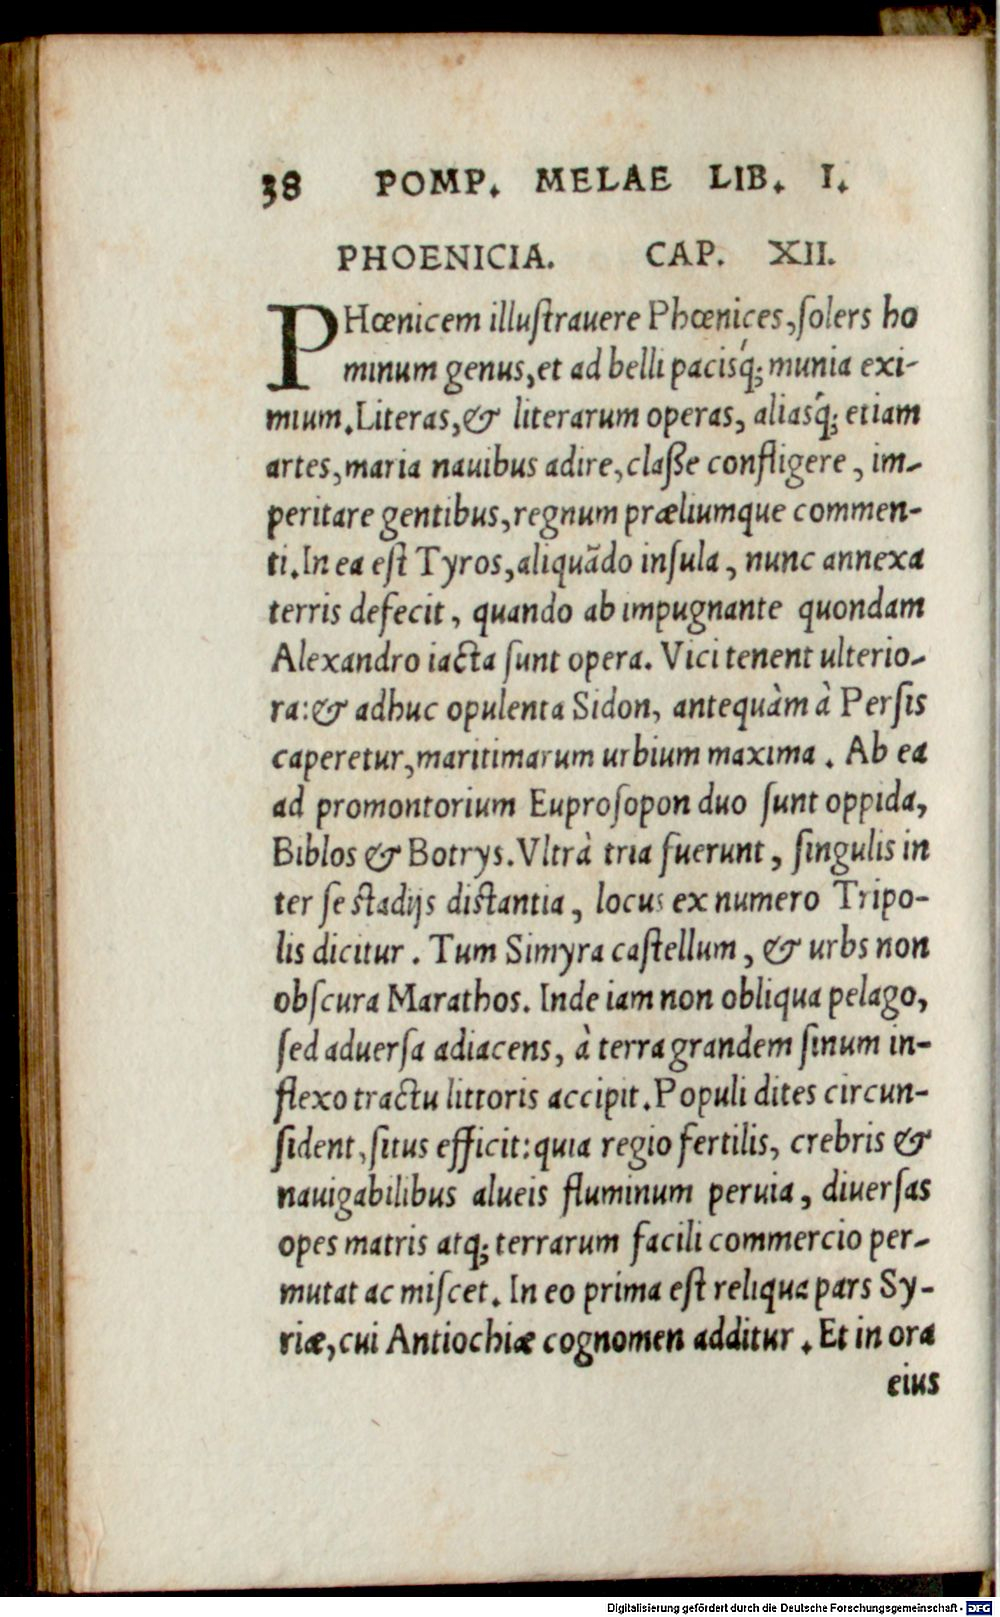 38 POMP. MELAE LIB. I.
PHOENICIA. CAP. XII.
PHœnicem illuſtrauere Phœnices, ſolers ho
minum genus, et ad belli pacisq́; munia exi-
mium. Literas, & literarum operas, aliasq́; etiam
artes, maria nauibus adire, claſſe confligere, im-
peritare gentibus, regnum præliumque commen-
ti. In ea eſt Tyros, aliquãdo inſula, nunc annexa
terris defecit, quando ab impugnante quondam
Alexandro iacta ſunt opera. Vici tenent vlterio-
ra: & adhuc opulenta Sidon, antequàm à Perſis
caperetur, maritimarum urbium maxima. Ab ea
ad promontorium Euproſopon duo ſunt oppida,
Biblos & Botrys. Vltrà tria fuerunt, ſingulis in
ter ſe ſtadijs diſtantia, locus ex numero Tripo-
lis dicitur. Tum Simyra caſtellum, & urbs non
obſcura Marathos. Inde iam non obliqua pelago,
ſed aduerſa adiacens, à terra grandem ſinum in-
flexo tractu littoris accipit. Populi dites circun-
ſident, ſitus efficit: quia regio fertilis, crebris &
nauigabilibus alueis fluminum peruia, diuerſas
opes matris atq; terrarum facili commercio per-
mutat ac miſcet. In eo prima eſt reliqua pars Sy-
riæ, cui Antiochiæ cognomen additur. Et in ora
eius
Digitalisierung gefördert durch die Deutsche Forschungsgemeinschaft - DFG